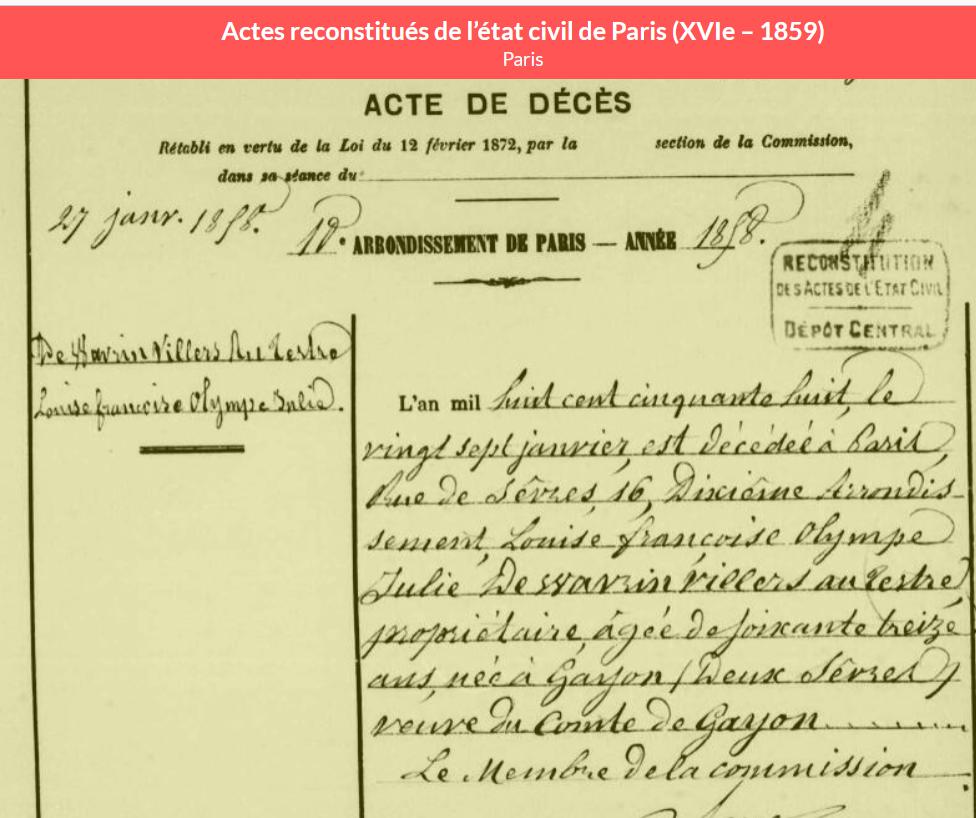 Actes reconstitués de l'état civil de Paris (XVIe – 1859)
Paris
ACTE DE DÉCÈS
Rétabli en vertu de la Loi du 12 février 1872, par la section de la Commission,
dans sa séance du
27 janv. 1858.
10e ARRONDISSEMENT DE PARIS — ANNÉE 1858.
RECONSTITUTION
DES ACTES DE L'ETAT CIVIL
DÉPÔT CENTRAL
De Wavrin Villers Au Tertre
Louise françoise Olympe Julie.
L'an mil huit cent cinquante huit, le
vingt sept janvier, est décédée à Paris,
Rue de Sèvres, 16, Dixième Arrondis-
sement, Louise françoise Olympe
Julie De Wavrin Villers au Tertre,
propriétaire, âgée de soixante treize
ans, née à Gayon (Deux Sèvres)
veuve du Comte de Gayon.........
Le Membre de la commission